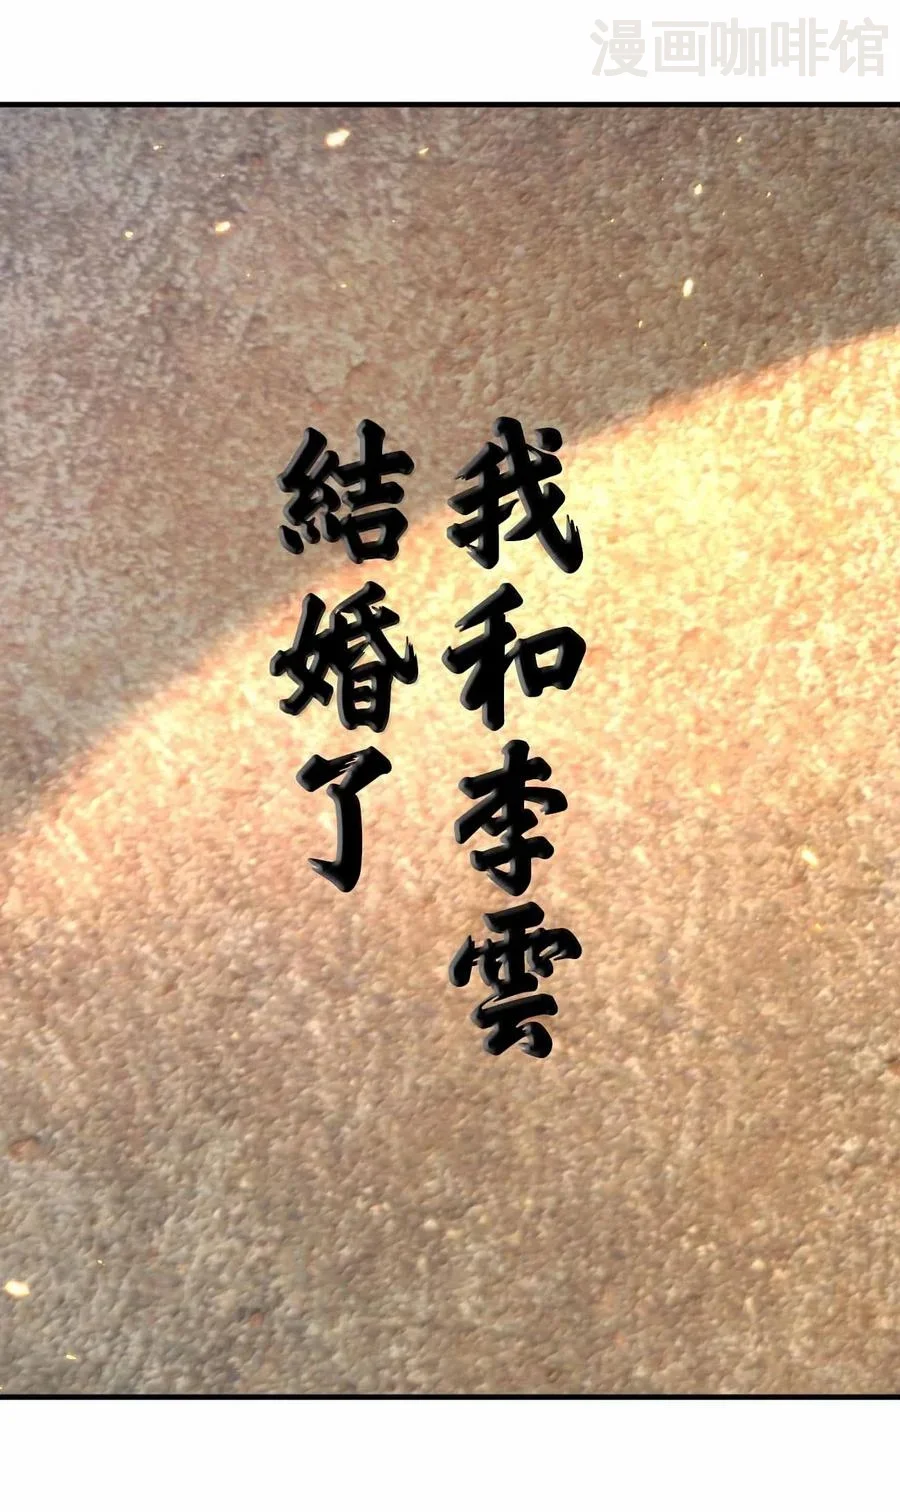 漫画咖啡馆
我和李雲
結婚了